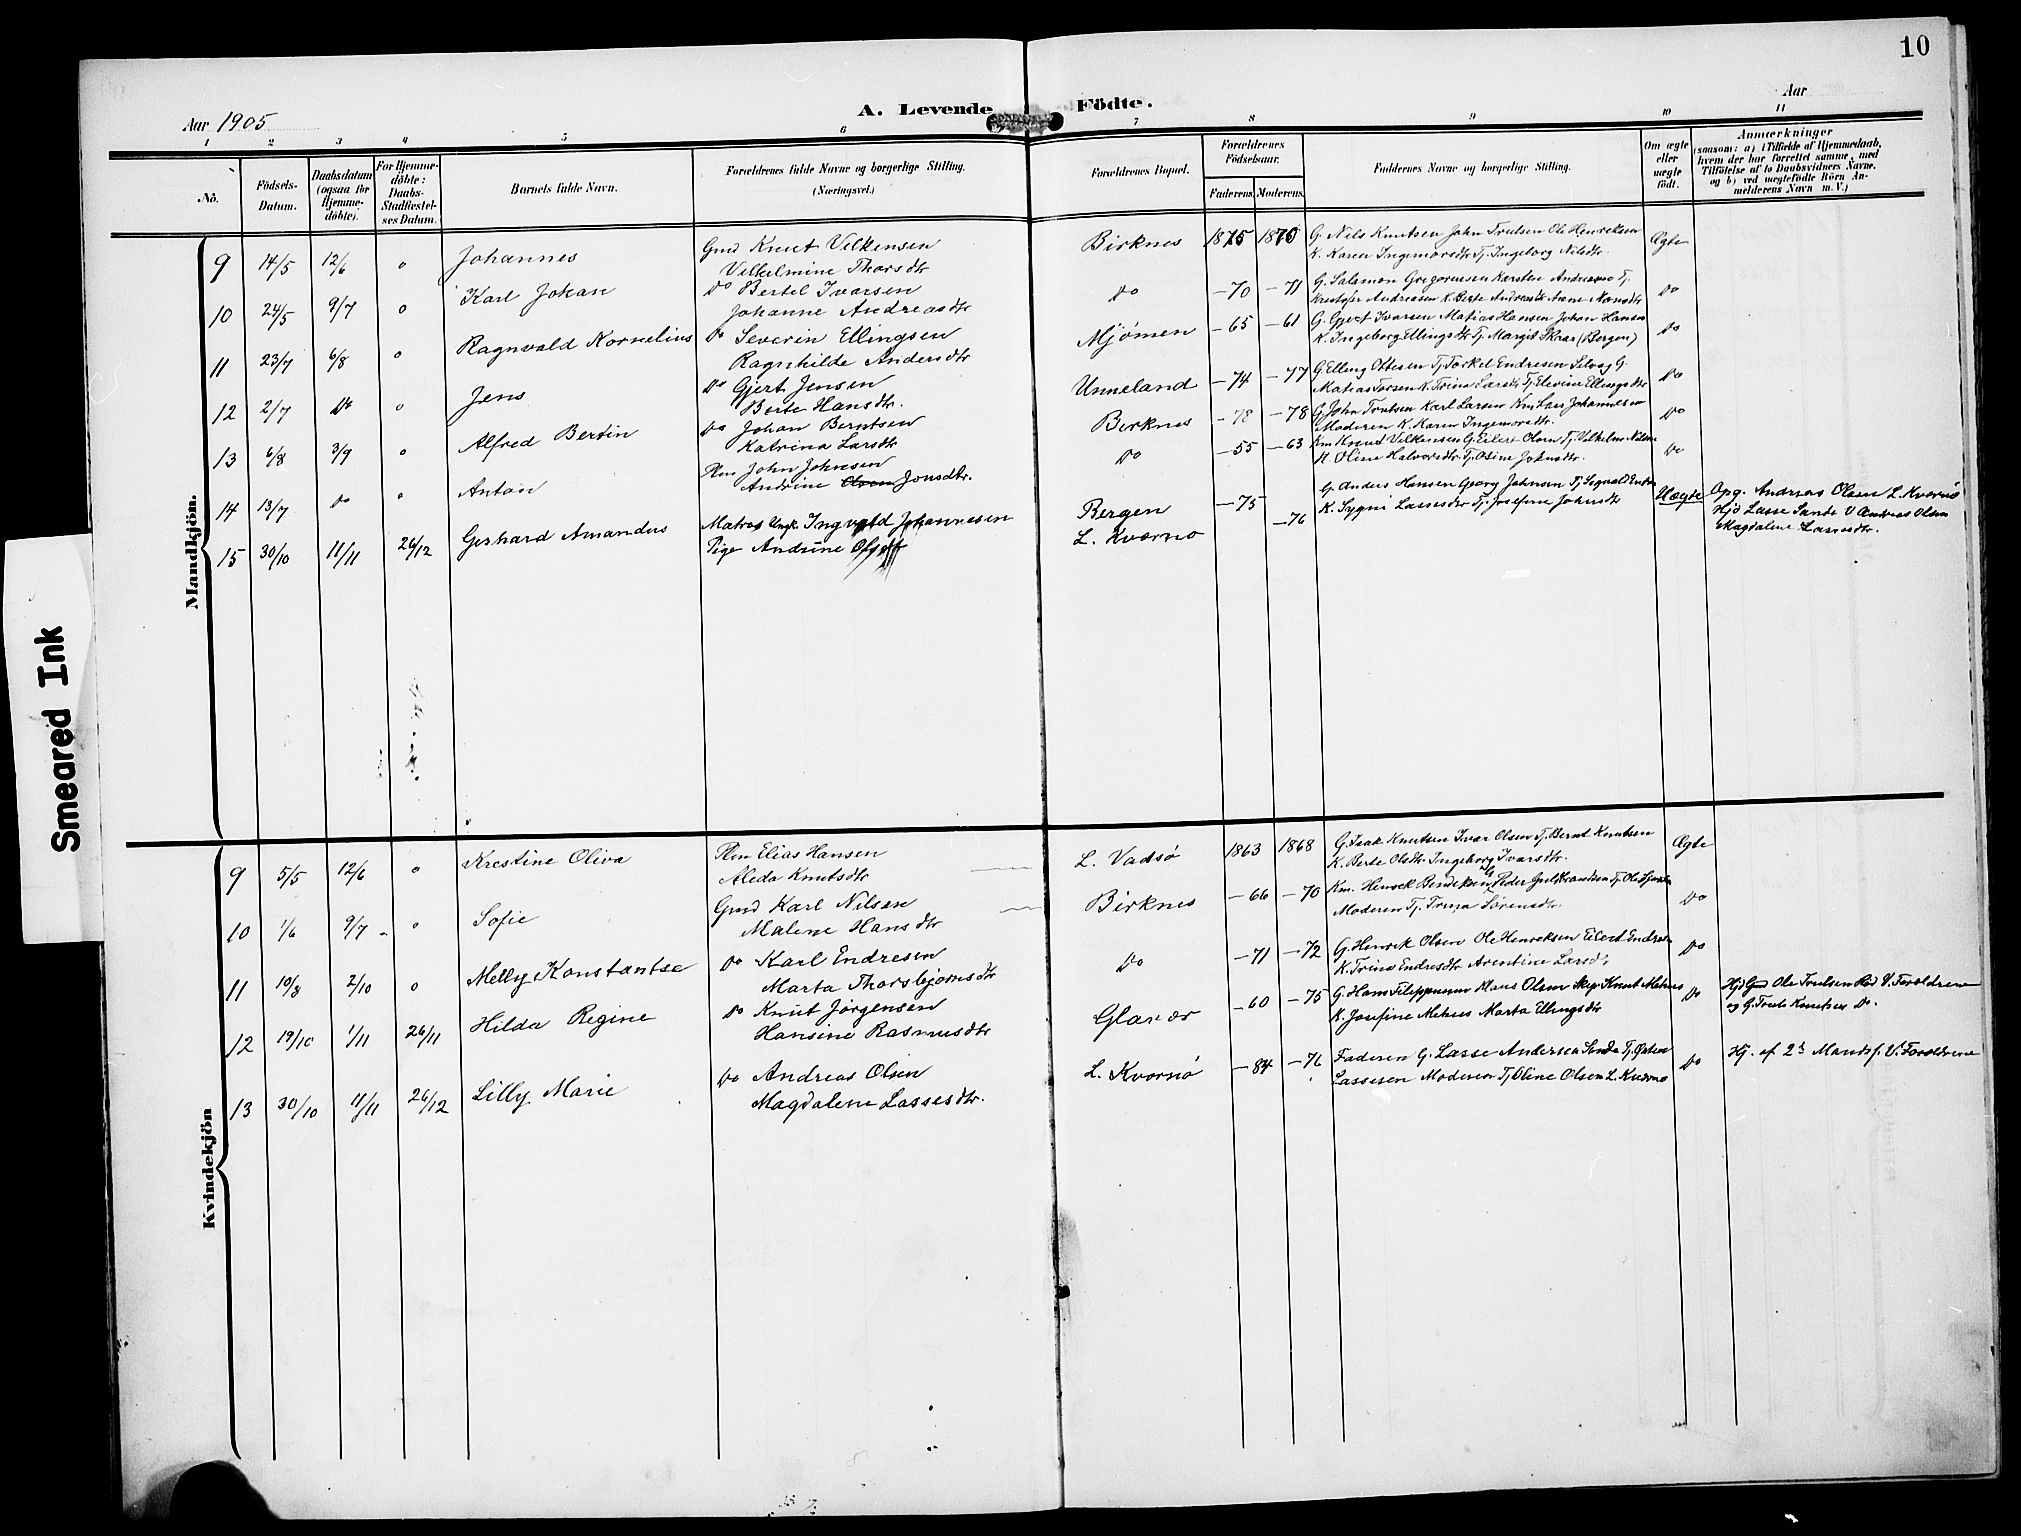 10
Aar 1905
A. Levende Födte.
Aar
1 2 3 4 5 6 7 8 9 10 11
No.
Födsels-Datum.
Daabsdatum (ogsaa for Hjemme-döbte).
For Hjemme-döbte: Daabs-Stadfæstel-ses Datum.
Barnets fulde Navn.
Forældrenes fulde Navne og borgerlige Stilling. (Næringsvei.)
Forældrenes Bopæl.
Forældrenes Födselsaar.
Faderens. Moderens.
Faddernes Navne og borgerlige Stilling.
Om ægte eller uægte født.
Anmærkninger
(saasom: a) i Tilfælde af Hjemmedaab, hvem der har forrettet samme, med Tilföielse af to Daabsvidners Navne. og b) ved uægtefödte Börn An-melderens Navn m. V.)
Mandkjön.
9 14/5 12/6 o Johannes Gmd Knut Vilkensen Birknes 1875 1870 G. Nils Knutsen John Trulsen Ole Henriksen Ægte
Vilhelmine Thorsdtr K. Karen Ingemorsdtr Tj. Ingeborg Nilsdtr.
10 24/5 9/7 o Karl Johan Do Bertel Ivarsen Do —70 —71 G. Salamon Gregoriusen Karsten Andersen Tj. Do
Johanne Andreasdtr Kristofer Andreasen K. Berte Andreasdtr Anne Monsdtr
11 23/7 6/8 o Ragnvald Kornelius Do Severin Ellingsen Mjømen —65 —61 G. Gjert Ivarsen Matias Hansen Johan Hansen Do
Ragnhilde Andersdtr K. Ingeborg Ellingsdtr Tj. Margit Skaar (Bergen)
12 2/7 Do o Jens Do Gjert Jensen Unneland —74 —77 G. Elling Ottesen Tj. Torkel Endresen Selvag G. Do
Berte Hansdtr. Matias Torsen K. Trina Larsdtr Tj. Elevine Ellingsdtr
13 6/8 3/9 o Alfred Bertin Do Johan Berntsen Birknes —78 —78 G. John Trulsen Karl Larsen Km Lars Johannesen Do
Katrina Larsdtr Moderen K. Karen Ingemorsdtr.
14 13/7 Do o Anton Plm John Johnsen Do —55 —63 Km Knud Vilkensen G. Eilert Olsen Tj. Vilhelm Nilsen Do
Andrine Olsen Jonsdtr. K. Oline Halvorsdtr. Tj. Osine Johnsdtr.
15 30/10 11/11 26/12 Gerhard Amandus Matros Ungk. Ingvald Johannesen Bergen —75 G. Anders Hansen Georg Johnsen Tj. Sigvald Endre Uægte Opg. Andreas Olsen L. Kvernø
Pige Andrine Olsdtr L. Kvernø —76 K. Sygni Lassesdtr Tj. Josefine Johnsdtr Hjd Lasse Sande V Andreas Olsen
Magdalene Lassesdtr.
Kvindekjön
9 5/5 12/6 o Krestine Oliva Plm Elias Hansen L. Vadsø 1863 1868 G. Isak Knutsen Ivar Olsen Tj. Bernt Knutsen Ægte
Aleda Knutsdtr K. Berte Olsdtr. Ingeborg Ivarsdtr.
10 1/6 9/7 o Sofie Gmd Karl Nilsen Birknes —66 —70 Km. Henrik Bendiksen G. Peder Gulbrandsen Tj. Ole Do
Malene Hansdtr Moderen Tj. Trina Sørensdtr.
11 10/8 2/10 o Melly Konstantse Do Karl Endresen Do —71 —72 G. Henrik Olsen Ole Henriksen Eilert Endresen Do
Marta Thorsbjørnsdtr K. Trina Endresdtr Arentine Larsdtr
12 19/10 1/11 26/11 Hilda Regine Do Knut Jørgensen Glavær —60 —75 G. Hans Filippusen Klaus Olsen Skip. Knut Mehus Do Hjd Gmd Ole Trulsen Rød V. Forældrene
Hansine Rasmusdtr K. Josefine Mehus Marta Ellingsdtr og G. Truls Knutsen Do.
13 30/10 11/11 26/12 Lilly Marie Do Andreas Olsen L. Kvernø —84 —76 Faderen G. Lasse Andersen Sande Tj. Do Hj. af 2de Mandsf. V. Forældrene
Magdalene Lassesdtr. Lassesen Moderen Tj. Oline Olsen L. Kvernø
Smeared Ink